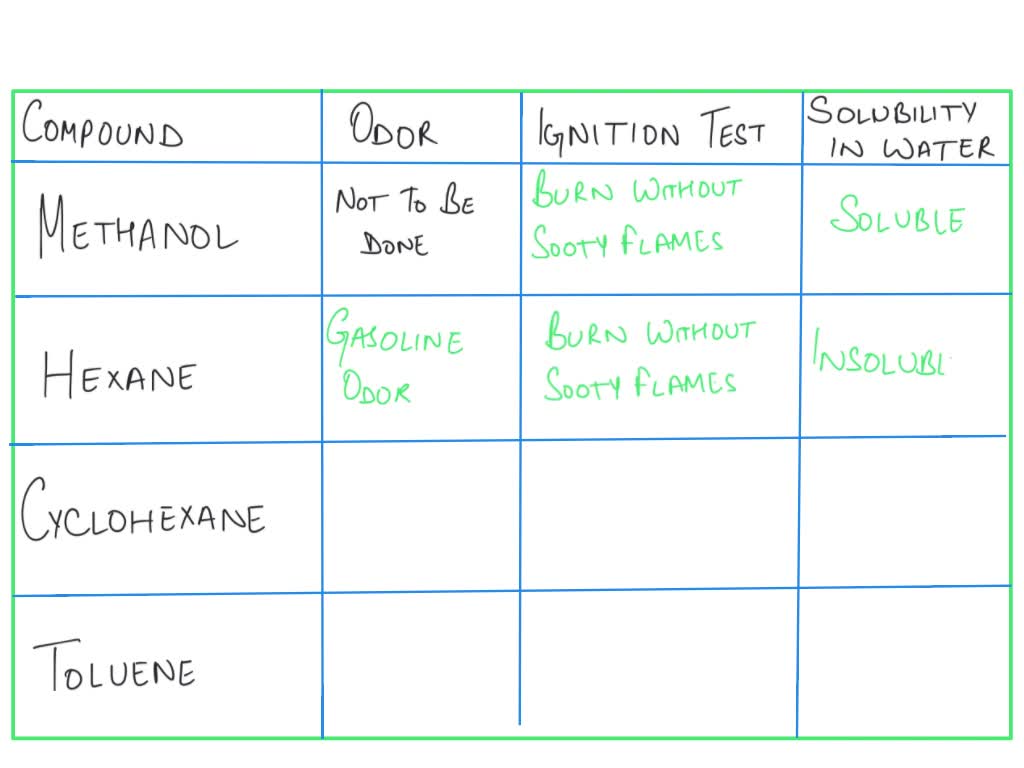 COMPOUND
ODOR
IGNITION TEST
SOLUBILITY
IN WATER
METHANOL
NOT TO BE
DONE
BURN WITHOUT
SOOTY FLAMES
SOLUBLE
HEXANE
GASOLINE
ODOR
BURN WITHOUT
SOOTY FLAMES
INSOLUBL
CYCLOHEXANE
TOLUENE